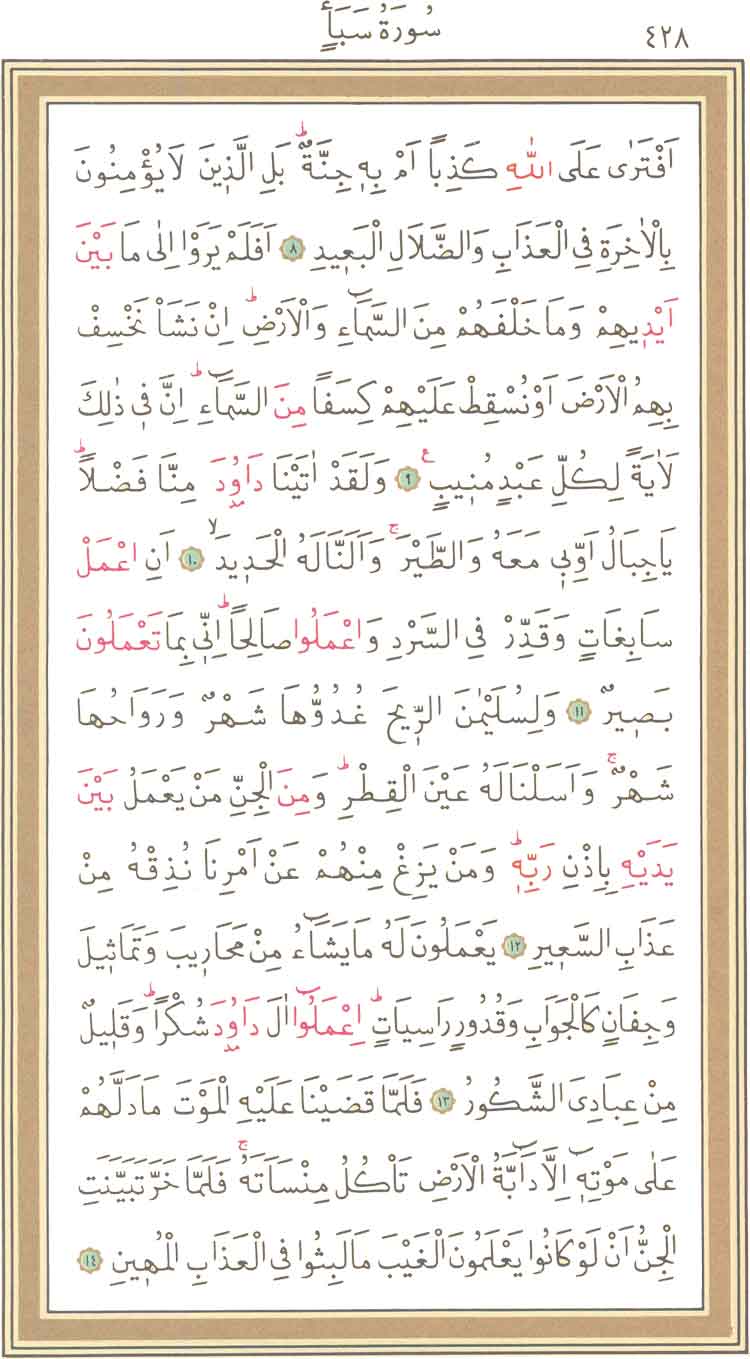 سُورَةُ سَبَأٍ
٤٢٨
اَفْتَرٰى عَلَى اللّٰهِ كَذِبًا اَمْ بِه۪ جِنَّةٌۜ بَلِ الَّذ۪ينَ لَا يُؤْمِنُونَ
بِالْاٰخِرَةِ فِي الْعَذَابِ وَالضَّلَالِ الْبَع۪يدِ ﴿٨﴾ اَفَلَمْ يَرَوْا اِلٰى مَا بَيْنَ
اَيْد۪يهِمْ وَمَا خَلْفَهُمْ مِنَ السَّمَٓاءِ وَالْاَرْضِۜ اِنْ نَشَأْ نَخْسِفْ
بِهِمُ الْاَرْضَ اَوْ نُسْقِطْ عَلَيْهِمْ كِسَفًا مِنَ السَّمَٓاءِۜ اِنَّ ف۪ي ذٰلِكَ
لَاٰيَةً لِكُلِّ عَبْدٍ مُن۪يبٍ۟ ﴿٩﴾ وَلَقَدْ اٰتَيْنَا دَاوُ۫دَ مِنَّا فَضْلًاۜ
يَاجِبَالُ اَوِّب۪ي مَعَهُ وَالطَّيْرَۚ وَاَلَنَّا لَهُ الْحَد۪يدَۙ ﴿١٠﴾ اَنِ اعْمَلْ
سَابِغَاتٍ وَقَدِّرْ فِي السَّرْدِ وَاعْمَلُوا صَالِحًاۜ اِنّ۪ي بِمَا تَعْمَلُونَ
بَص۪يرٌ ﴿١١﴾ وَلِسُلَيْمٰنَ الرّ۪يحَ غُدُوُّهَا شَهْرٌ وَرَوَاحُهَا
شَهْرٌۚ وَاَسَلْنَا لَهُ عَيْنَ الْقِطْرِۜ وَمِنَ الْجِنِّ مَنْ يَعْمَلُ بَيْنَ
يَدَيْهِ بِاِذْنِ رَبِّه۪ۜ وَمَنْ يَزِغْ مِنْهُمْ عَنْ اَمْرِنَا نُذِقْهُ مِنْ
عَذَابِ السَّع۪يرِ ﴿١٢﴾ يَعْمَلُونَ لَهُ مَا يَشَٓاءُ مِنْ مَحَار۪يبَ وَتَمَاث۪يلَ
وَجِفَانٍ كَالْجَوَابِ وَقُدُورٍ رَاسِيَاتٍۜ اِعْمَلُٓوا اٰلَ دَاوُ۫دَ شُكْرًاۜ وَقَل۪يلٌ
مِنْ عِبَادِيَ الشَّكُورُ ﴿١٣﴾ فَلَمَّا قَضَيْنَا عَلَيْهِ الْمَوْتَ مَا دَلَّهُمْ
عَلٰى مَوْتِه۪ٓ اِلَّا دَٓابَّةُ الْاَرْضِ تَأْكُلُ مِنْسَاَتَهُۚ فَلَمَّا خَرَّ تَبَيَّنَتِ
الْجِنُّ اَنْ لَوْ كَانُوا يَعْلَمُونَ الْغَيْبَ مَا لَبِثُوا فِي الْعَذَابِ الْمُه۪ينِ ﴿١٤﴾